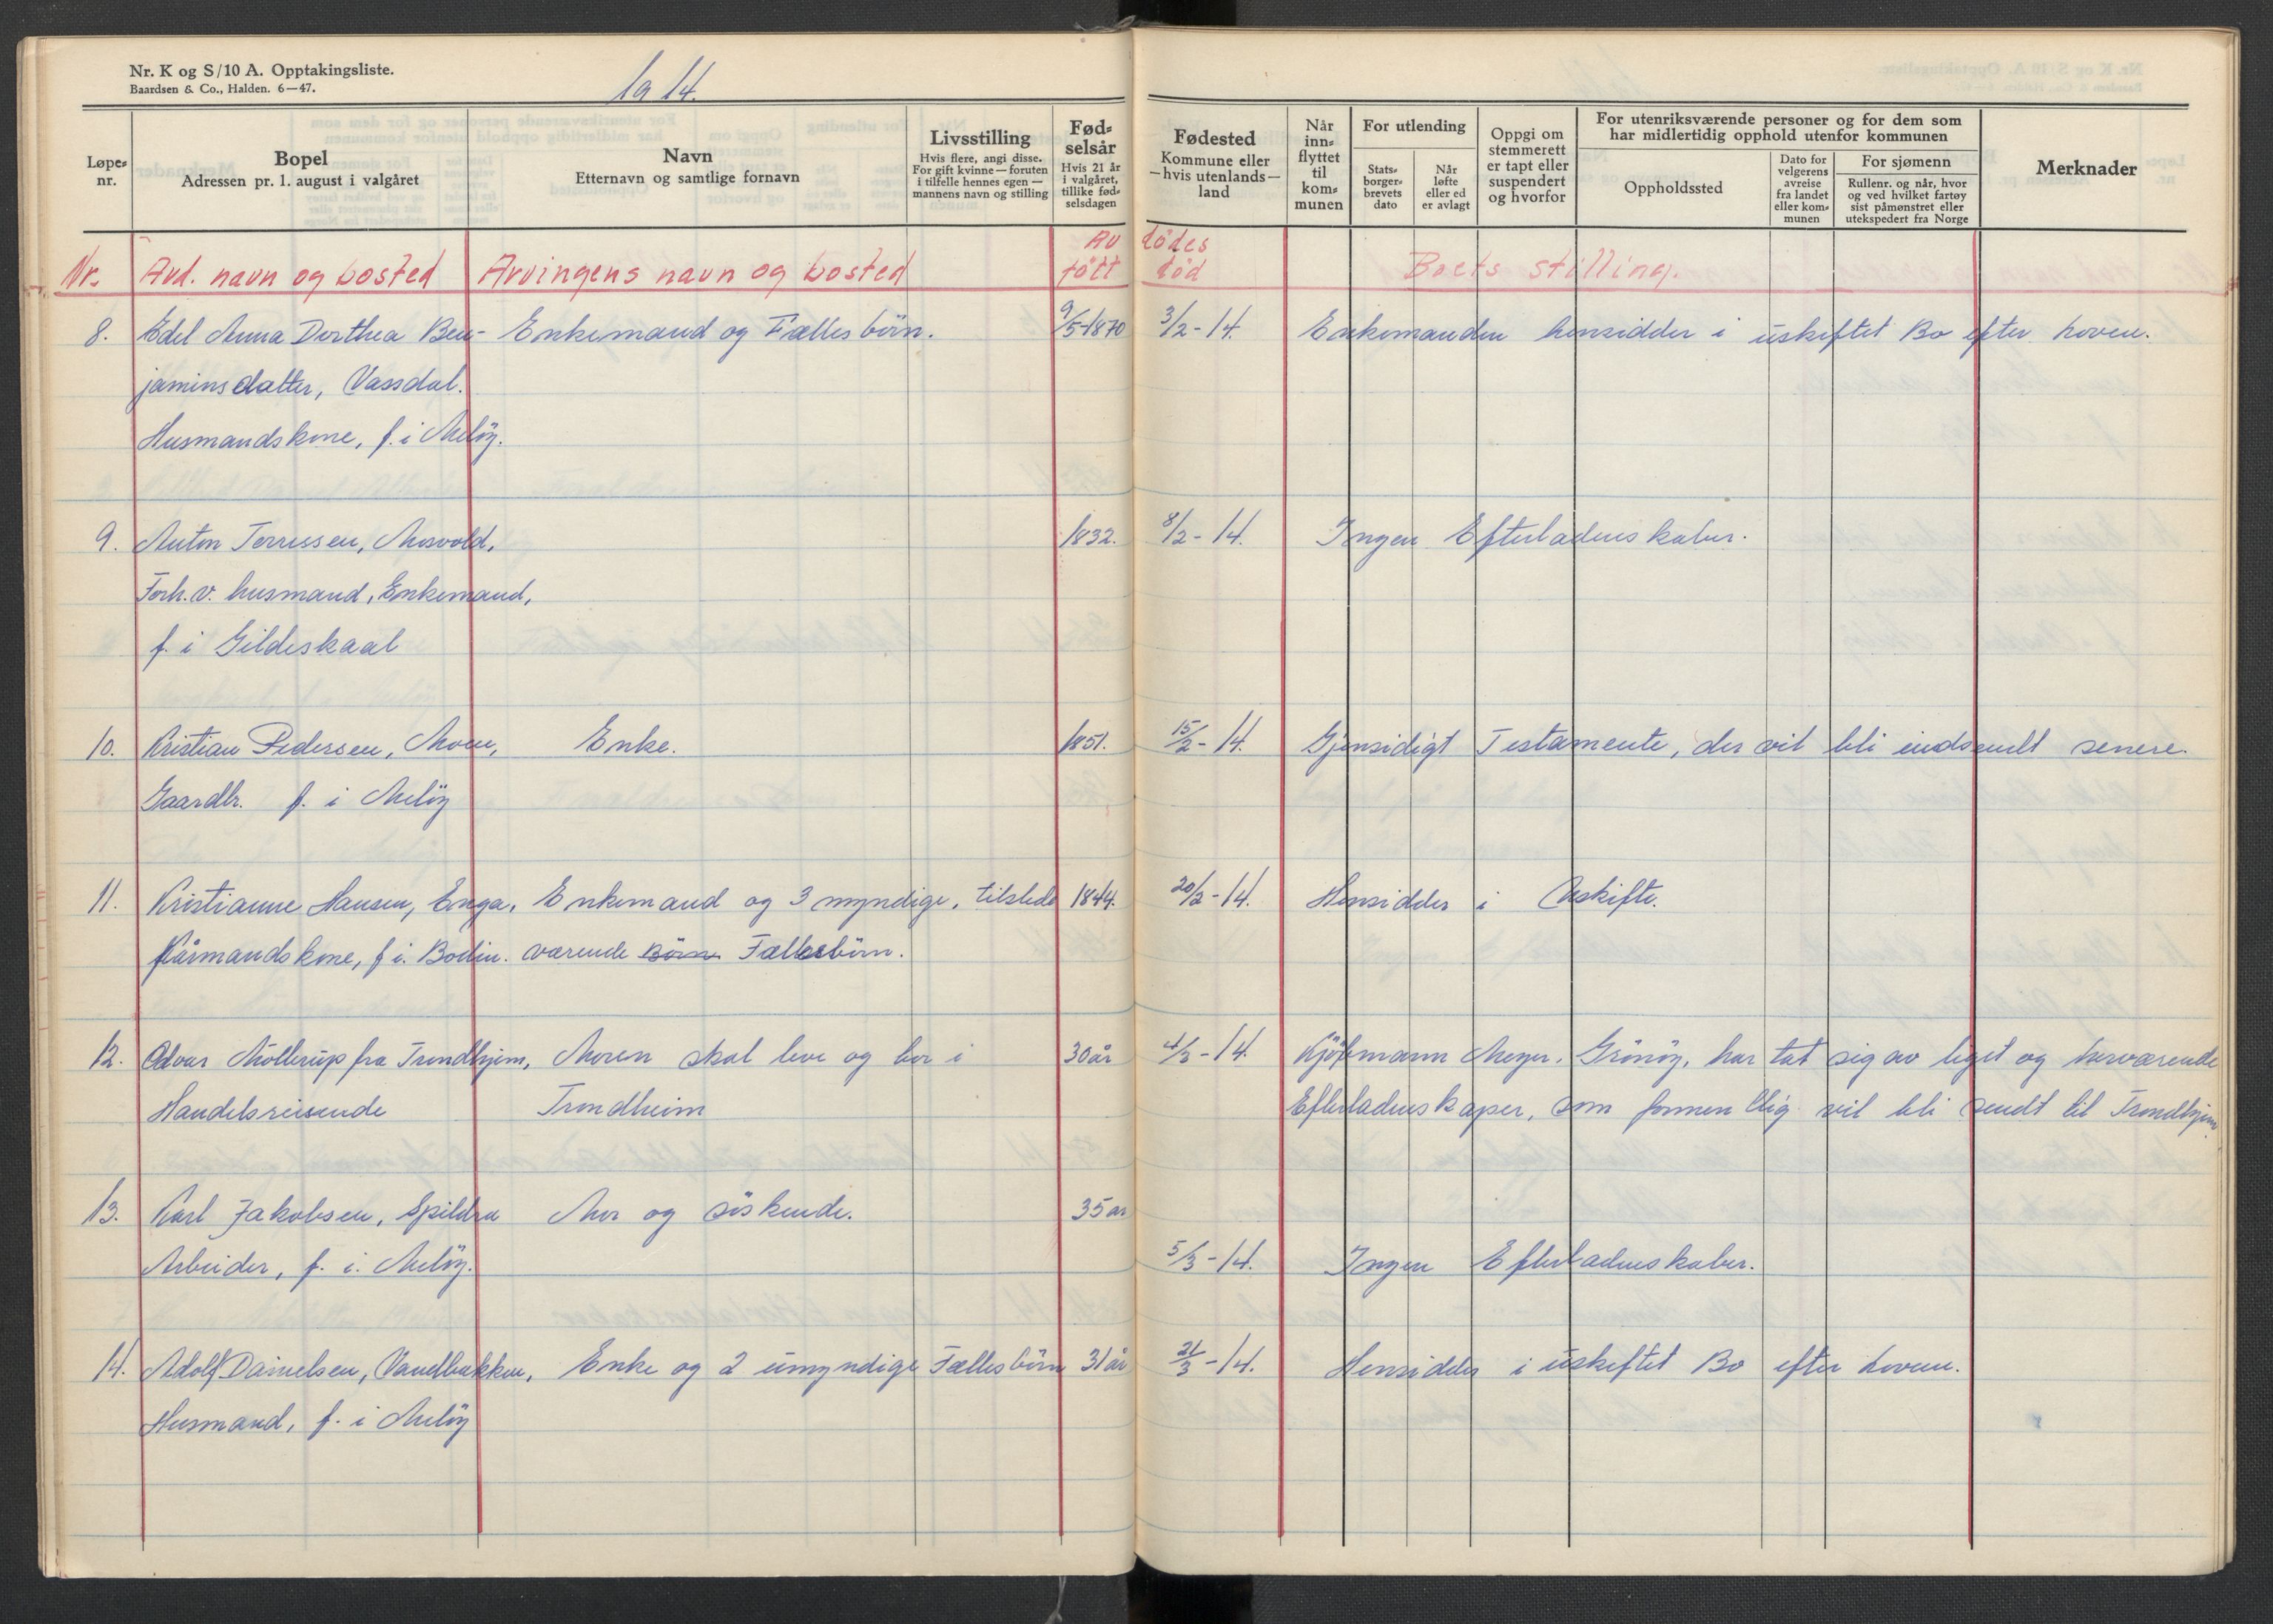 Nr. K og S/10 A. Opptakingsliste.
Baardsen & Co., Halden. 6—47.
1914.
Løpe-
nr.
Bopel
Adressen pr. 1. august i valgåret
Navn
Etternavn og samtlige fornavn
Livsstilling
Hvis flere, angi disse.
For gift kvinne — foruten
i tilfelle hennes egen —
mannens navn og stilling
Fød-
selsår
Hvis 21 år
i valgåret,
tillike fød-
selsdagen
Fødested
Kommune eller
—hvis utenlands—
land
Når
inn-
flyttet
til
kom-
munen
For utlending
Stats-
borger-
brevets
dato
Når
løfte
eller ed
er avlagt
Oppgi om
stemmerett
er tapt eller
suspendert
og hvorfor
For utenriksværende personer og for dem som
har midlertidig opphold utenfor kommunen
Oppholdssted
Dato for
velgerens
avreise
fra landet
eller kom-
munen
For sjømenn
Rullenr. og når, hvor
og ved hvilket fartøy
sist påmønstret eller
utekspedert fra Norge
Merknader
Av dödes
Nr. Avd. navn og bosted Arvingens navn og bosted fött död Boets stilling.
8. Edel Anna Dorthea Ben- Enkemand og Fællesbörn. 9/5-1870 3/2-14. Enkemanden hensidder i uskiftet Bo efter loven.
jaminsdatter, Vassdal.
Husmandskone, f. i Melöy.
9. Anton Terressen, Mosvold, 1832. 8/2-14. Ingen Efterladenskaber.
Forh.v. husmand, Enkemand,
f. i Gildeskaal
10. Kristian Pedersen, Moen, Enke. 1851. 15/2-14. Gjensidigt Testamente, der vil bli indsendt senere.
Gaardbr. f. i Melöy
11. Kristianne Hansen, Enga, Enkemand og 3 myndige, tilstede 1844. 20/2-14. Hensidder i Uskifte.
Kårmandskone, f i. Bodin. værende Börn Fællesbörn.
12. Odvar Möllerup fra Trondhjem, Moren skal leve og bor i 30 år 4/3-14. Kjöbmann Meyer, Grönöy, har tat sig av liget og herværende
Handelsreisende Trondheim Efterladenskaper, som formentlig vil bli sendt til Trondhjem
13. Karl Jakobsen, Spildra Mor og söskende. 35 år
Arbeider, f. i. Melöy. 5/3-14. Ingen Efterladenskaber.
14. Adolf Danielsen, Vandbakken, Enke og 2 umyndige Fællesbörn 31 år 21/3-14. Hensidder i uskiftet Bo efter loven.
Husmand, f. i Melöy